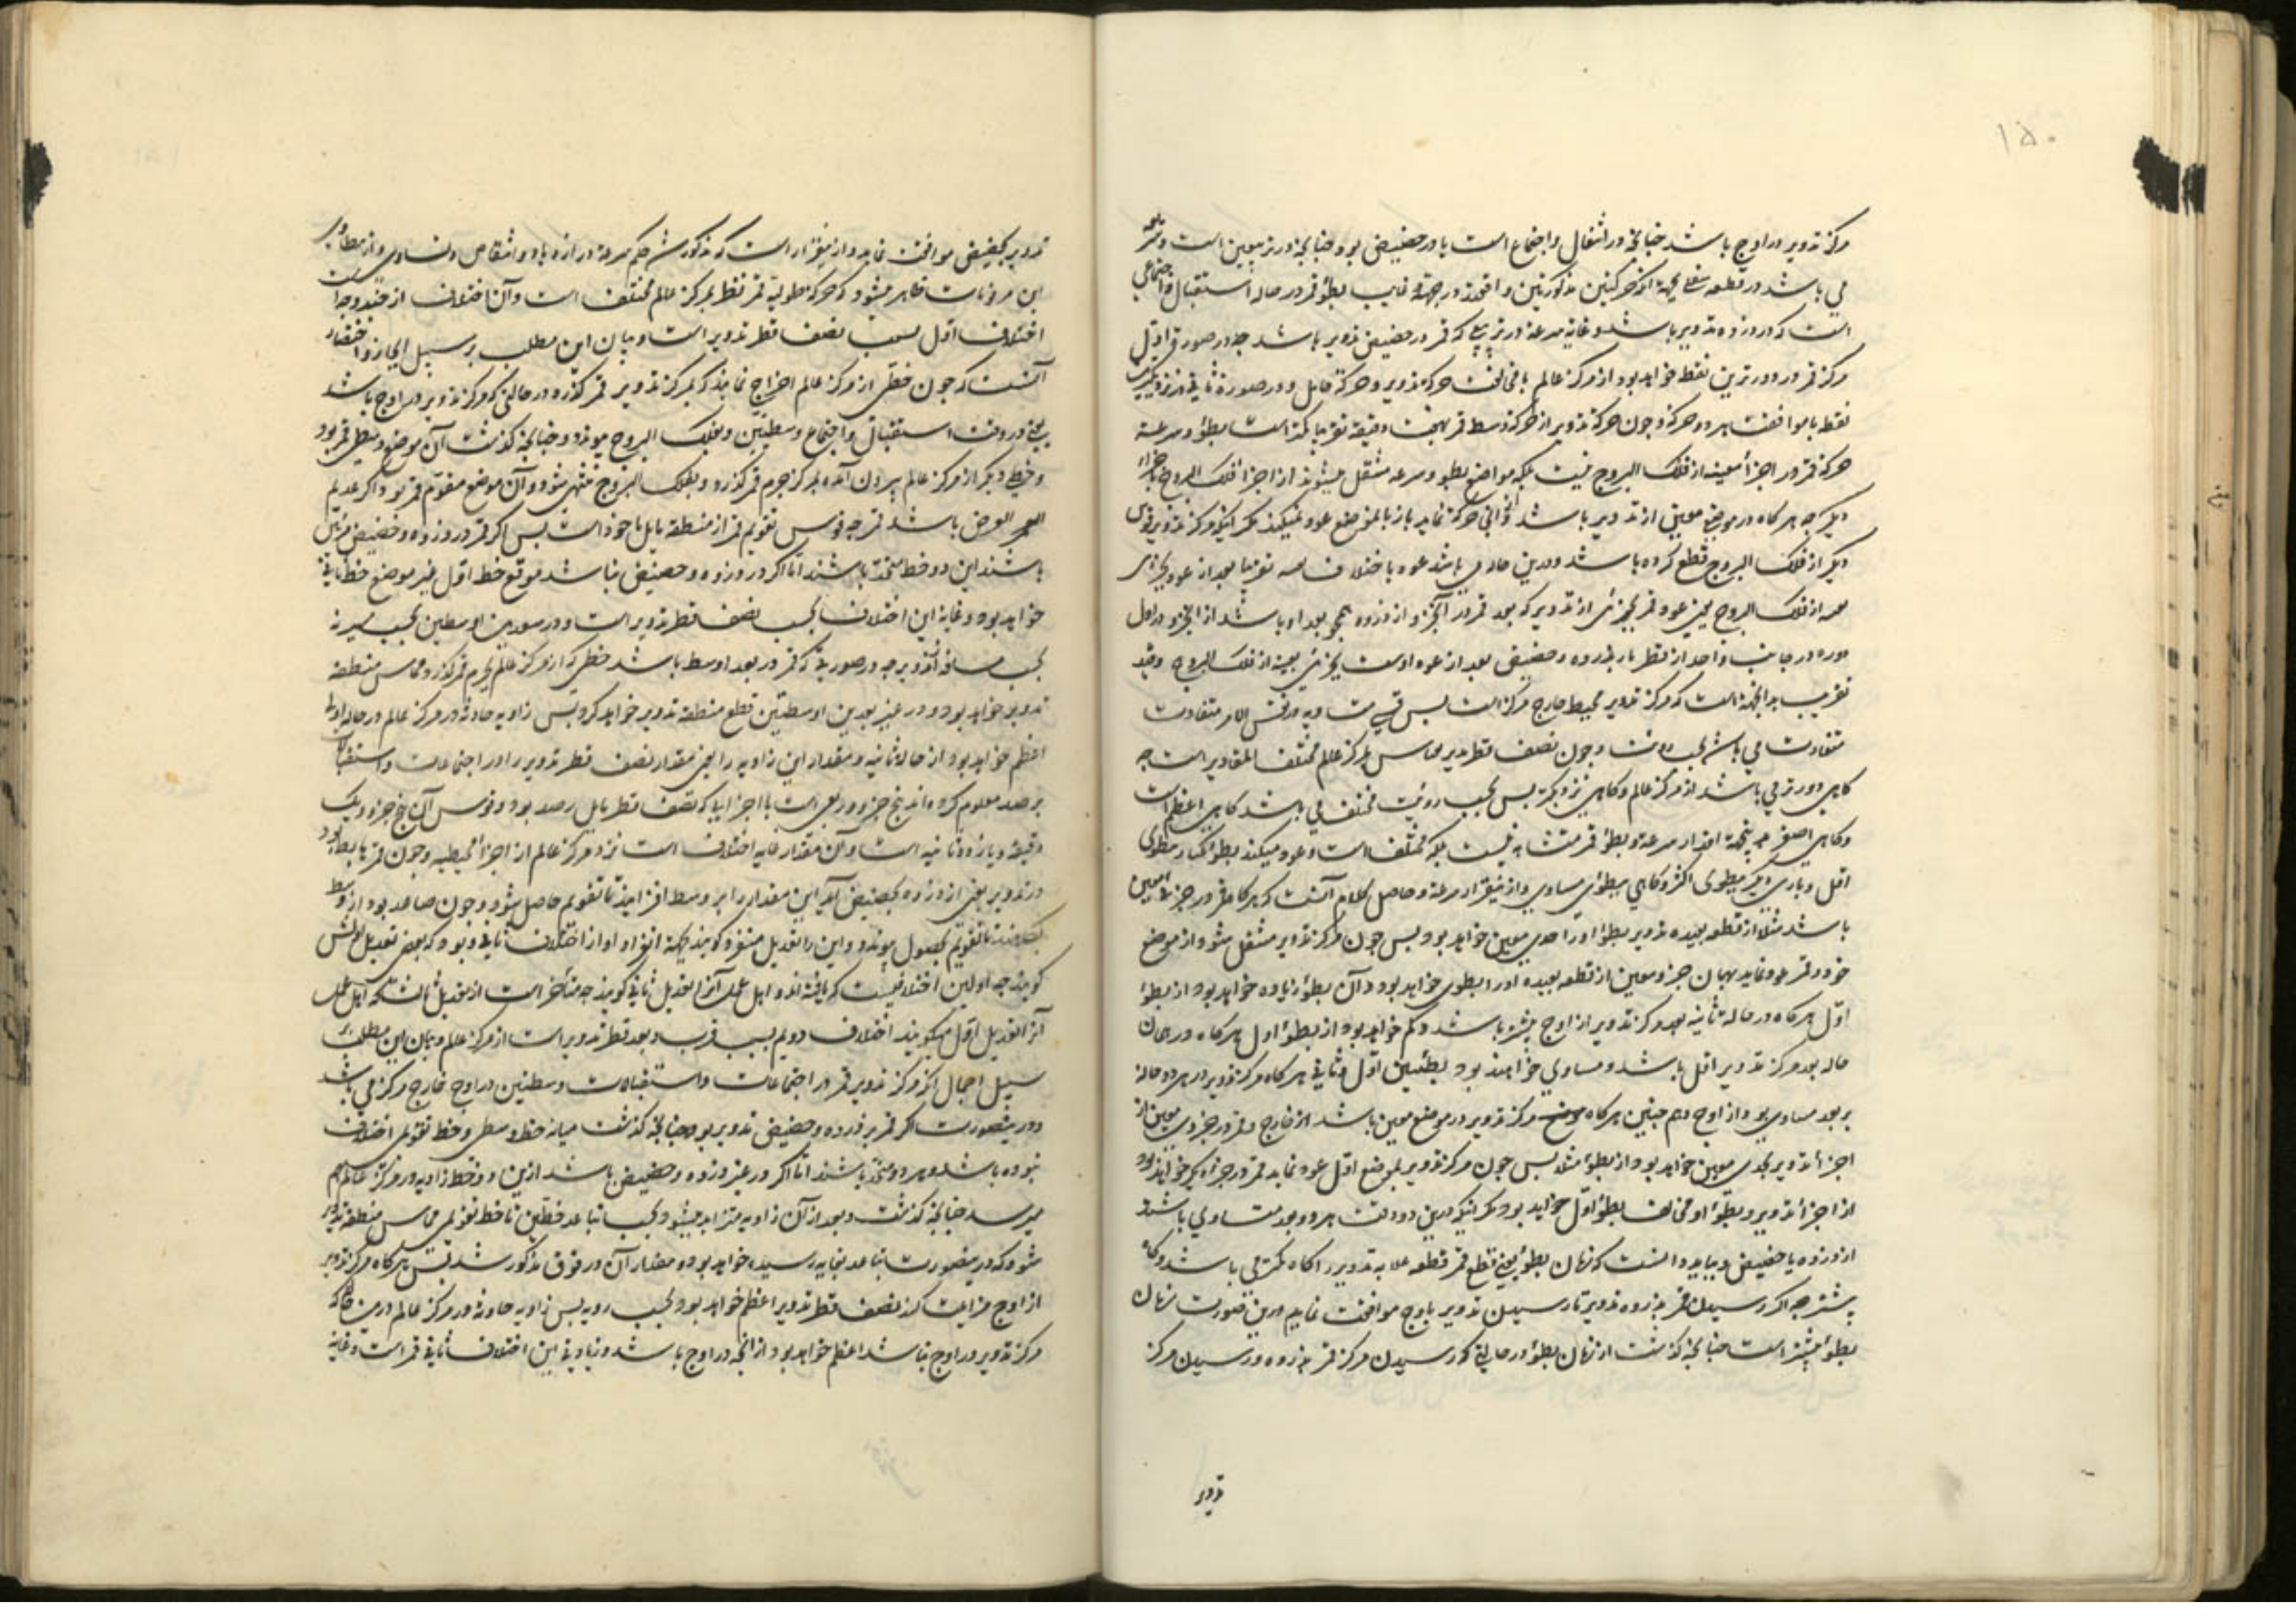 ۱۵۰
مرکز تدویر در اوج باشد چنانچه در استقبال و اجتماع است یا در حضیض بود چنانچه در تربیعین است و سرعة
می باشد در قطعه سفلی بجهة آنکه حرکتین مذکورتین واقعند در جهة و غایب بطؤ قمر در حاله استقبال و اجتماعی
است که در ذروه تدویر باشد و غایة سرعة در تربیعی که قمر در حضیض تدویر باشد چه در صورة اول
مرکز قمر در دورترین نقط خواهد بود از مرکز عالم با مخالفت حرکة تدویر و حرکة حامل و در صورة ثانیه در نزدیکترین
نقط با موافقت هر دو حرکة و چون حرکة تدویر از حرکة وسط قمر بهفت دقیقه تقریبا کمتر است بطؤ و سرعة
حرکة قمر در اجزأ معینه از فلک البروج نیست بلکه مواضع بطؤ و سرعة منتقل میشوند از اجزأ فلک البروج باجزاء
دیگر چه هر گاه در موضع معین از تدویر باشد و آنی حرکة نماید باز بآنموضع عود نمیکند مگر آنکه مرکز تدویر قوسی
دیگر از فلک البروج قطع کرده باشد
از فلک البروج یعنی عود قمر بجزئی از تدویر که بعد قمر در آنجزو از ذروه همچو بعد او باشد از آنجزو در اول
دوره در جانب واحد از قطر مار بذروه و حضیض بعد از عود اوست بجزئی بعینه از فلک البروج
تقریب بدانجهة است که مرکز تدویر محیط خارج مرکز است پس قسی متساویه در نفس الامر متفاوت
متفاوت می باشد بحسب رؤیت و چون نصف قطر تدویر بمرکز عالم مختلف المقادیر است چه
گاهی دورتر می باشد از مرکز عالم و گاهی نزدیکتر پس بحسب رؤیت مختلف می باشد گاهی اعظم است
و گاهی اصغر چه بجهة اقدار سرعة و بطؤ قمر متشابه نیست بلکه مختلف است و عود میکند بطؤ یکبار بطؤی
اقل و باری دیگر ببطؤی اکثر و گاهی ببطؤی مساوی و ازینقرار سرعة و حاصل کلام آنست که هر گاه قمر در جزء معین
باشد مثلا از قطعه بعیده تدویر بطؤ او را حدی معین خواهد بود پس چون مرکز تدویر منتقل شود از موضع
خود و قمر عود نماید بهمان جزو معین از قطعه بعیده او را بطؤی خواهد بود و آن بطؤ زیاده خواهد بود از بطؤ
اول هر گاه در حاله ثانیه بعد مرکز تدویر از اوج بیشتر باشد و کم خواهد بود از بطؤ اول هر گاه در همان
حاله بعد مرکز تدویر اقل باشد و مساوی خواهند بود بطئین اول و ثانی هر گاه مرکز تدویر در هر دو حاله
بر بعد مساوی بود از اوج و هم چنین هر گاه مرکز تدویر در موضع معین باشد از خارج و قمر در جزوی معین از
اجزأ تدویر بحدی معین خواهد بود از بطؤ مثلا پس چون مرکز تدویر بموضع اول عود نماید قمر در جزء دیگر خواهد بود
از اجزأ تدویر و بطؤ او مخالف بطؤ اول خواهد بود مگر آنکه درین دو وقت هر دو بعد متساوی باشند
از ذروه یا حضیض و بباید دانست که زمان بطؤ یعنی قطع قمر قطعه علیا به تدویر را گاه کمتر می باشد و گاه
بیشتر چه اگر رسیدن قمر بذروه تدویر تا رسیدن تدویر باوج موافقت نماید درین صورت زمان
بطؤ بیشتر است چنانچه گذشت از زمان بطؤ در حالتی که رسیدن مرکز قمر بذروه و رسیدن مرکز
تدویر
تدویر بحضیض موافقت نماید و ازینقرار است که مذکور شد حکم سرعة در ازدیاد و انتقاص و تساوی و از مطاوی
این مرقومات ظاهر میشود که حرکة طولیه قمر نظر بمرکز عالم مختلف است و آن اختلاف از چند وجه است
اختلاف اول بسبب نصف قطر تدویر است و بیان این مطلب بر سبیل ایجاز و اختصار
آنست که چون خطی از مرکز عالم اخراج نمایند که بمرکز تدویر قمر گذرد در حالتی که مرکز تدویر در اوج باشد
یعنی در وقت استقبال و اجتماع وسطیین و بفلک البروج پیوندد چنانچه گذشت آن موضع وسطی قمر بود
و خطی دیگر از مرکز عالم بیرون آمده بمرکز جرم قمر گذرد و بفلک البروج منتهی شود و آن موضع مقوم قمر بود اگر عدیم
العرض باشد قمر چه قوس تقویم قمر از منطقه مایل ماخوذ است پس اگر قمر در ذروه و حضیض مرئی
باشند این دو خط متحد باشند اما اگر در ذروه و حضیض نباشد موقع خط اول غیر موضع خط ثانی
خواهد بود و غایة این اختلاف بحسب نصف قطر تدویر است و در بعدین اوسطین بحسب سیر نه
بحسب مسافة تدویر چه در صورتی که قمر در بعد اوسط باشد خطی که از مرکز عالم بجرم قمر گذرد مماس منطقه
تدویر خواهد بود و در غیر بعدین اوسطین قطع منطقه تدویر خواهد کرد پس زاویه حادثه در مرکز عالم در حاله اولی
اعظم خواهد بود از حاله ثانیه و مقدار این زاویه را یعنی مقدار نصف قطر تدویر را در اجتماعات و استقبالات
برصد معلوم کرده اند پنج جزو و ربعی است با اجزایی که نصف قطر مایل رصد بود و قوس آن پنج جزو و یک
دقیقه و یازده ثانیه است و آن مقدار غایه اختلاف است نزد مرکز عالم از اجزأ محیطیه و چون قمر هابط بود
در تدویر یعنی از ذروه بحضیض آید این مقدار را بر وسط افزایند تا تقویم حاصل شود و چون صاعد بود از وسط
بکاهند تا تقویم بحصول پیوندد و این را تعدیل منفرد گویند بجهة انفراد او از اختلاف ثانی و بود که بعضی تعدیل اولش
گویند چه اولین اختلافیست که یافته اند و اهل عمل آنرا تعدیل ثانی گویند چه متأخر است از تعدیل ثالث که اهل عمل
آنرا تعدیل اول میگویند اختلاف دویم بسبب قرب و بعد قطر تدویر است از مرکز عالم و بیان این مطلب
سبیل اجمال آنکه مرکز تدویر قمر در اجتماعات و استقبالات وسطیین در اوج خارج مرکز می باشد
و درینصورت اگر قمر بر ذروه و حضیض تدویر بود چنانچه گذشت میانه خط وسطی و خط تقویمی اختلاف
نبوده باشد و هر دو متحد باشند اما اگر در غیر ذروه و حضیض باشد ازین دو خط زاویه در مرکز عالم بهم
میرسد چنانچه گذشت و بعد از آن زاویه متزاید میشود بحسب تباعد خطین تا خط تقویمی مماس منطقه تدویر
شود که درینصورت تباعد بغایه رسیده خواهد بود و مقدار آن در فوق مذکور شد پس هر گاه مرکز تدویر
از اوج مزایلت کند نصف قطر تدویر اعظم خواهد بود بحسب رویه پس زاویه حادثه در مرکز عالم درین حال که
مرکز تدویر در اوج نباشد اعظم خواهد بود از آنچه در اوج باشد و زیادتی این اختلاف ثانی قمر است و غایة